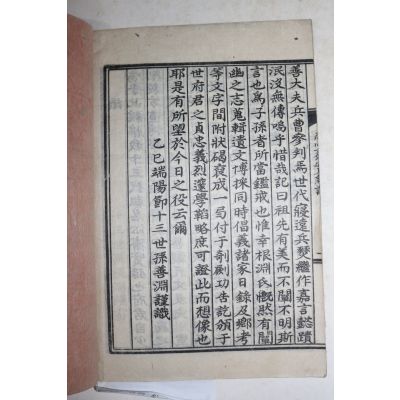 善大夫兵曹參判焉世代寢遠兵燹繼作嘉言懿蹟
泯沒無傳嗚乎惜哉記曰祖先有美而不闡不明斯
言也爲子孫者所當鑑戒也惟幸根淵氏慨然有闡
幽之志蒐輯遺文傳採同時倡義諸家日錄及鄕考
等文字間附狀碣裒成一蒭付于剞劂功告訖頒于
世府君之貞忠義烈邃學韜略庶可證此而想像也
耶是有所望於今日之役云爾
乙巳端陽節十三世孫善淵謹識